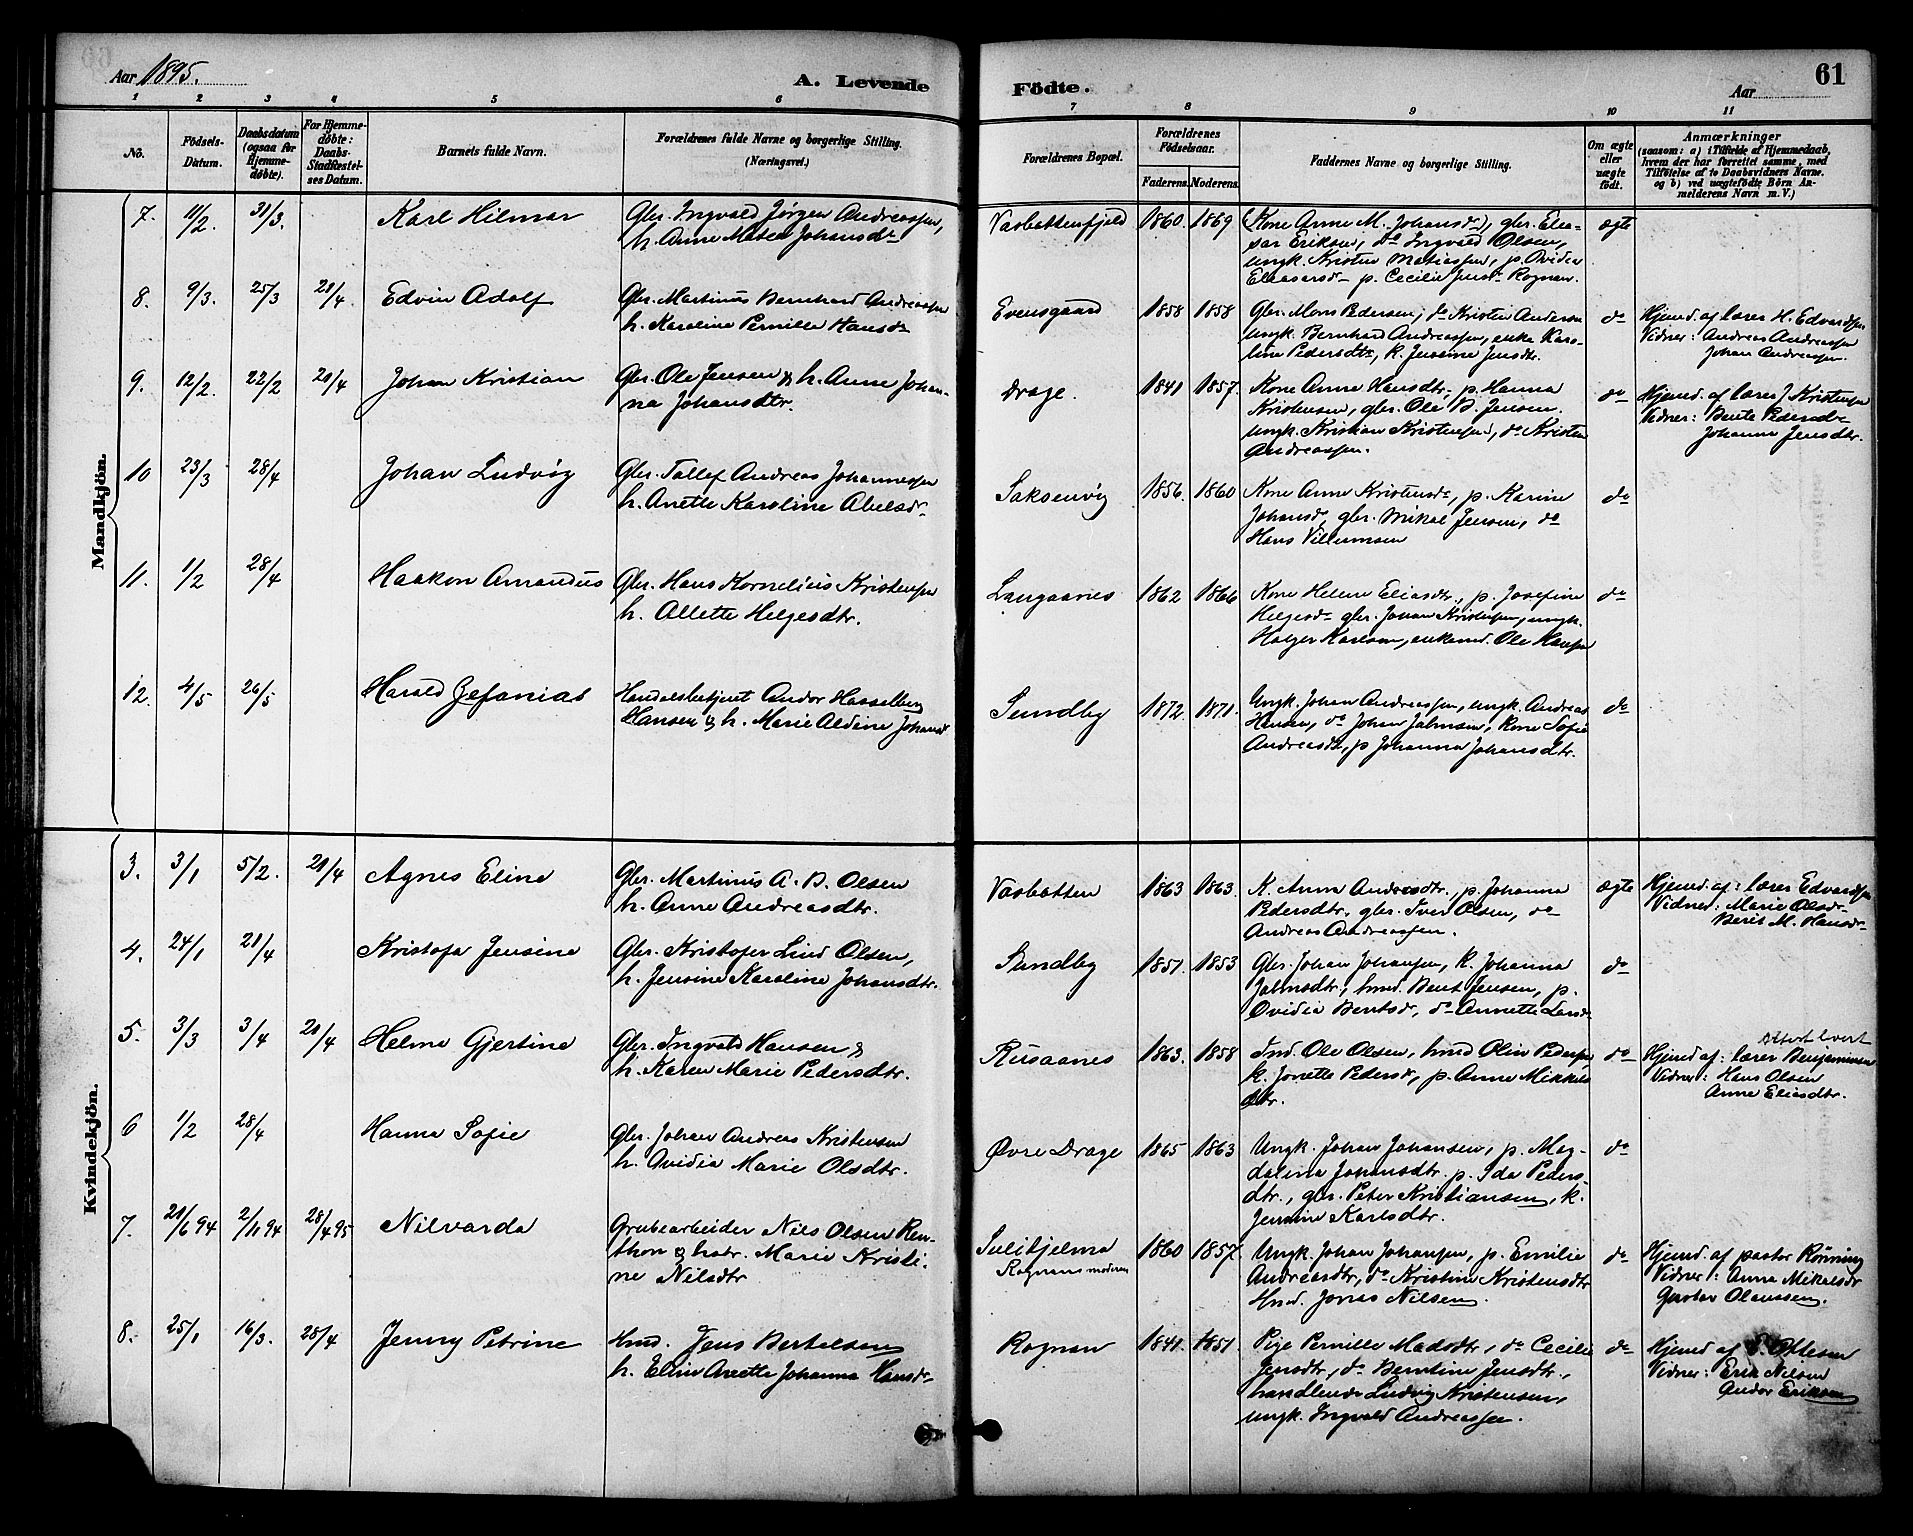 Aar 1895.
A. Levende
Födte.
Aar
61
1 2 3 4 5 6 7 8 9 10 11
No.
Födsels-
Datum.
Daabsdatum
(ogsaa for
Hjemme-
döbte).
For Hjemme-
döbte:
Daabs-
Stadfæstel-
ses Datum.
Barnets fulde Navn.
Forældrenes fulde Navne og borgerlige Stilling.
(Næringsvei.)
Forældrenes Bopæl.
Forældrenes
Födselsaar.
Faderens. Moderens.
Faddernes Navne og borgerlige Stilling.
Om ægte
eller
uægte
födt.
Anmærkninger
(saasom: a) i Tilfælde af Hjemmedaab,
hvem der har forrettet samme, med
Tilföielse af to Daabsvidners Navne.
og b) ved uægtefödte Börn An-
melderens Navn m. V.)
Mandkjön.
7. 11/2. 31/3. Karl Hilmar
Gbr. Ingvald Jørgen Andreassen,
h. Anne Matea Johansdr
Vasbottenfjeld 1860. 1869
(Kone Anne M. Johansdr), gbr. Elea-
sar Eriksen, do Ingvald Olsen,
ungk. Kristen Matiassen, p. Ovidia
Eleasersdr p. Cecilie Jensdr Rognan.
ægte
8. 9/3. 25/3 21/4. Edvin Adolf
Gbr. Martinus Bernhard Andreassen
h. Karoline Pernille Hansdr
Evensgaard 1858 1858
Gbr. Mons Pedersen, do Kristen Andersen
ungk. Bernhard Andreassen, enke Karo-
line Pedersdtr, k. Jensine Jensdtr.
do
Hjemd. af lærer H. Edvardsen
Vidner: Andreas Andreassen
Johan Andreassen.
9. 12/2. 22/2 21/4 Johan Kristian
Gbr. Ole Jensen & h. Anne Johan-
na Johansdtr.
Drage. 1841 1857.
Kone Anne Hansdtr, p. Hanna
Kristensen, gbr. Ole B. Jensen.
ungk. Kristian Kristensen, do Kristen
Andreassen.
do
Hjemd. af lærer J. Kristensen
Vidner: Berit Pedersdr
Johanna Jensdtr.
10 23/3 28/4 Johan Ludvig
Gbr. Tollef Andreas Johannessen
h. Anette Karoline Abelsdr
Saksenvig 1856. 1860
Kone Anne Kristensdr, p. Karine
Johansd, gbr. Mikal Jensen, do
Hans Villumsen
do
11. 1/2 28/4 Haakon Amandus
Gbr. Hans Kornelius Kristensen
h. Allette Helgesdtr.
Langaanes 1862 1866
Kone Helene Eliasdtr., p. Josefine
Helgesdr gbr. Johan Kristensen, ungk.
Holger Karlsen, enkemd. Ole Hansen
do
12. 4/5 26/5 Harald Zefanias
Handelsbetjent Andor Hasselberg
Hansen & h. Marie Aldine Johansd
Sundby 1872. 1871.
Ungk. Johan Andreassen, ungk. Andreas
Hansen, do Johan Jalmsen, Kone Sofie
Andreasdr, p Johanna Johansdtr.
do
Kvindekjön.
3. 3/1 5/2. 21/4 Agnes Eline
Gbr. Martinus A. B. Olsen
h. Anne Andreasdtr.
Vasbotten 1863 1863.
K. Anne Andreasdtr., p. Johanna
Pedersdtr, gbr. Iver Olsen, do
Andreas Andreassen.
ægte
Hjemd. af: lærer Edvardsen
Vidner: Marie Olsdr
Berit M. Hansdr
4. 24/1 21/4 Kristofa Jensine
Gbr. Kristofer Lind Olsen,
h. Jensine Karoline Johansdtr.
Sundby 1851. 1853
Gbr. Johan Johansen, K. Johanna
Jalmsdtr., hmd. Bent Jensen, p.
Ovidia Bentsdr, do Annette Larsdr
do
5. 3/3 3/4 21/4 Helene Gjertine
Gbr. Ingvald Hansen &
h. Karen Marie Pedersdtr.
Rusaanes 1863. 1858
Ind. Ole Olsen, hmd Olin Pedersen
k. Jonette Pedersd, p. Anne Mikkels
dtr.
do
Attest levert
Hjemd af: lærer Benjaminsen
Vidner: Hans Olsen
Anne Eliasdtr.
6 1/2 28/4 Hanna Sofie
Gbr. Johan Andreas Kristensen
h. Ovidia Marie Olsdtr.
Øvre Drage 1865 1863
Ungk. Johan Johansen, p. Mag-
dalena Johansdtr. p. Ida Peders-
dtr., gbr. Peter Kristiansen, k.
Jensine Karlsdtr.
do
7. 21/6 94 2/11 94 28/4 95 Nilvarda
Grubearbeider Nils Olsen Ren-
thon & hstr. Marie Kristi-
ne Nilsdtr
Sulitjelma
Rognans moderen
1860 1857.
Ungk. Johan Johansen, p. Emilie
Andreasdtr, do Kristine Kristensdtr
Hmd. Jonas Nilsen
do
Hjemd. af pastor Rønning
Vidner: Anna Mikalsdr
Gustav Olaussen.
8. 25/1 16/3. 28/4 Jenny Petrine
Hmd. Jens Bertelsen
h. Elin Anette Johanna Hansdr
Rognan 1841. 1851.
Pige Pernille Madsdtr, do Cecilie
Jensdtr, do Berntine Jensdtr.,
handlende Ludvig Kristensen,
ungk. Ingvald Andreassen.
do
Hjemd af Ottesen
Vidner: Erik Nilsen
Andor Eriksen